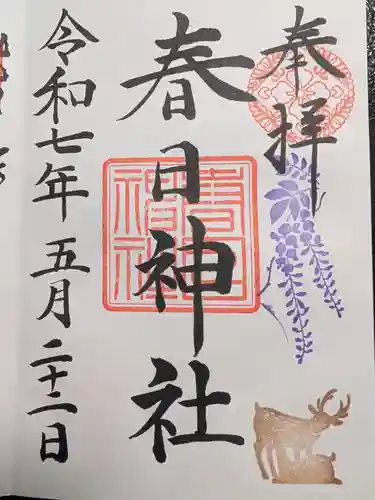 奉拝
春日神社
令和七年五月二十二日
春日
神社